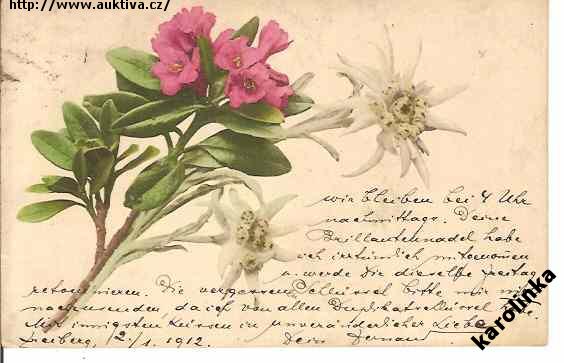 http://www.auktiva.cz/
wir bleiben bei 4 Uhr
nachmittags. Deine
Brillantennadel habe
ich irrtümlich mitgenommen
u. werde Dir dieselbe Freitag
retournieren. Die vergessenen Schlüssel bitte mir
nachzusenden, da ich von allen Duplikatschlüssel
Mit innigsten Küssen in unveränderlicher Liebe
Freiberg, 2/1. 1912. Dein
karolinka